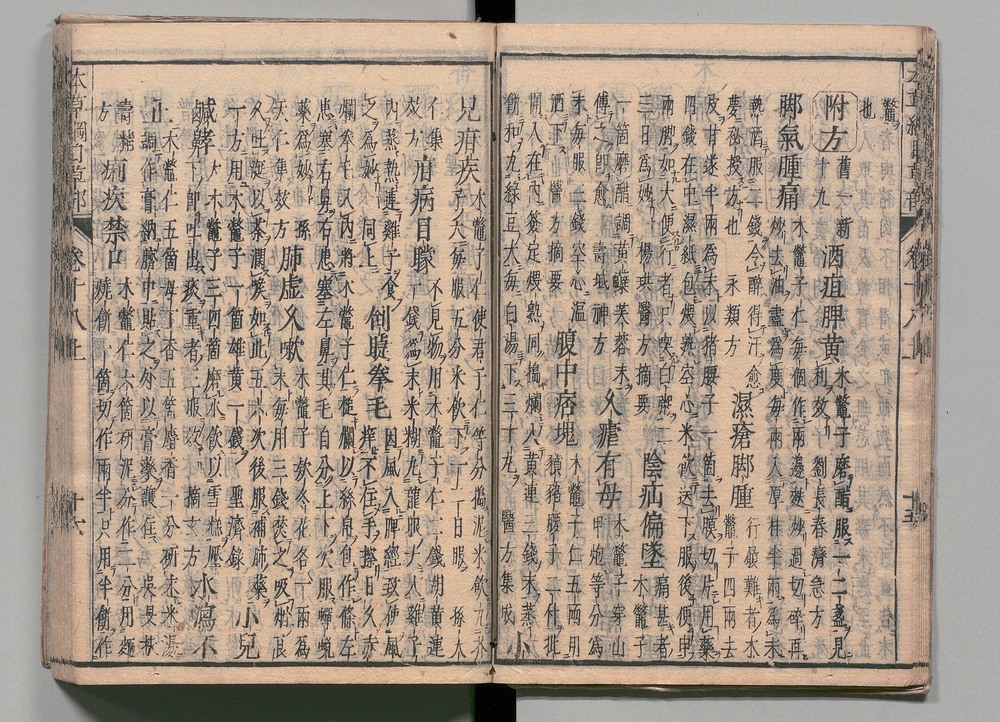 鼈
也
附方 舊一新十九 酒疸脾黃 木鼈子磨醋服一二盞見利效劉長春濟急方
脚氣腫痛 木鼈子仁每個作兩邊麸炒過切碎再炒去油盡爲度每兩入厚桂半兩爲末
熱酒服二錢令醉得汗愈夢秘授方也永類方 濕瘡脚腫 行履難者木鼈子四兩去
皮甘遂半兩爲末以猪腰子一箇去膜切片用藥
四錢在中濕紙包煨熟空心米飮送下服後便
兩脚如大便行者只喫白粥二
三日爲妙楊珙醫方摘要 陰疝偏墜 痛甚者木鼈子
一箇磨醋調黃蘗芙蓉末
傅之即愈壽域神方 久瘧有母 木鼈子穿山甲炮等分爲
末每服三錢空心溫
酒下醫方摘要 腹中痞塊 木鼈子仁五兩用
豶豬腰子二付批
開入在內簽定煨熟同搗爛入黃連三錢末蒸
餅和丸綠豆大每白湯下三十丸醫方集成 小
兒疳疾 木鼈子仁使君子仁等分搗泥米飮丸芥
子大每服五分米飮下一日二服 孫天
仁集效方 疳病目矇 不見物用木鼈子仁二錢胡黃連
一錢爲末米糊丸龍眼大入雞子
內蒸熟連雞子食
之爲妙同上 倒睫拳毛 因風入脾經致使風
痒不住手擦日久赤
爛拳毛入內將木鼈子仁搥爛以絲帛包作條左
患塞右鼻右患塞左鼻其毛自分上下次服蟬蛻
藥爲妙孫
天仁集效方 肺虛久嗽 木鼈子款冬花各一兩爲
末每用三錢焚之吸烟良
久吐涎以茶潤喉如此五六次後服補肺藥
一方用木鼈子一箇雄黃一錢聖濟錄 小兒
鹹齁 大木鼈子三四箇磨水飮以雪糕壓
下即吐出痰重者三服效摘玄方 水瀉不
止 木鼈仁五箇母丁香五箇麝香一分研末米湯
調作膏納臍中貼之外以膏藥護住吳旻扶
壽精方 痢疾禁口 木鼈仁六箇研泥分作二分用麵
燒餅一箇切作兩半只用半餅作
本草綱目草部 卷十八上 十五
本草綱目草部 卷十八上 十六